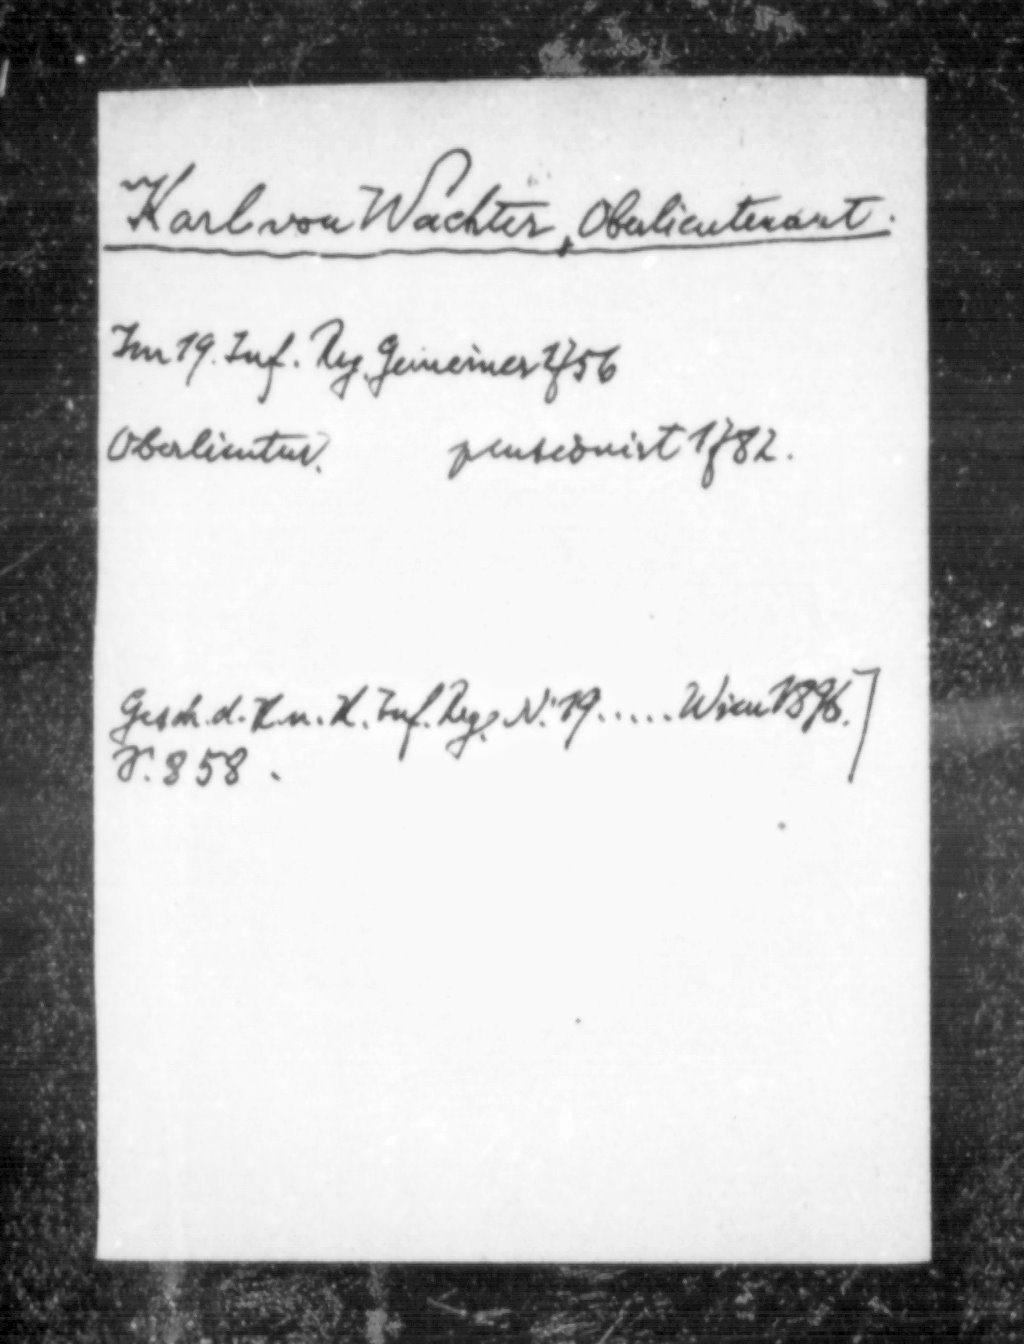 Karl von Wachter, Oberlieutenant.
Im 19. Inf. Reg. Gemeiner 1756
Oberlieutnt. pensionirt 1782.
Gesch. d. K. u. K. Inf. Reg. N. 19 ..... Wien 1896.]
S. 858.